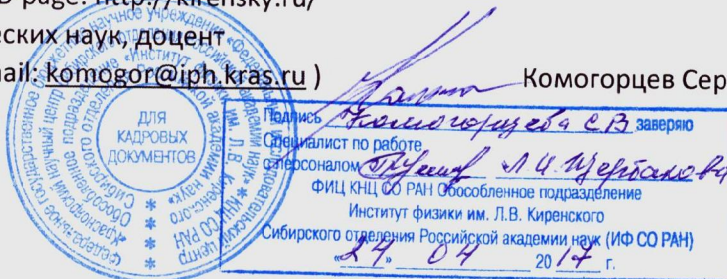 D page: http://kirensky.ru/
еских наук, доцент
ail: komogor@iph.kras.ru )
Комогорцев Сер
ДЛЯ
КАДРОВЫХ
ДОКУМЕНТОВ
Подпись Комогорцева С.В. заверяю
Специалист по работе
с персоналом Л.И. Щербакова
ФИЦ КНЦ СО РАН Обособленное подразделение
Институт физики им. Л.В. Киренского
Сибирского отделения Российской академии наук (ИФ СО РАН)
«24» 04 2017 г.